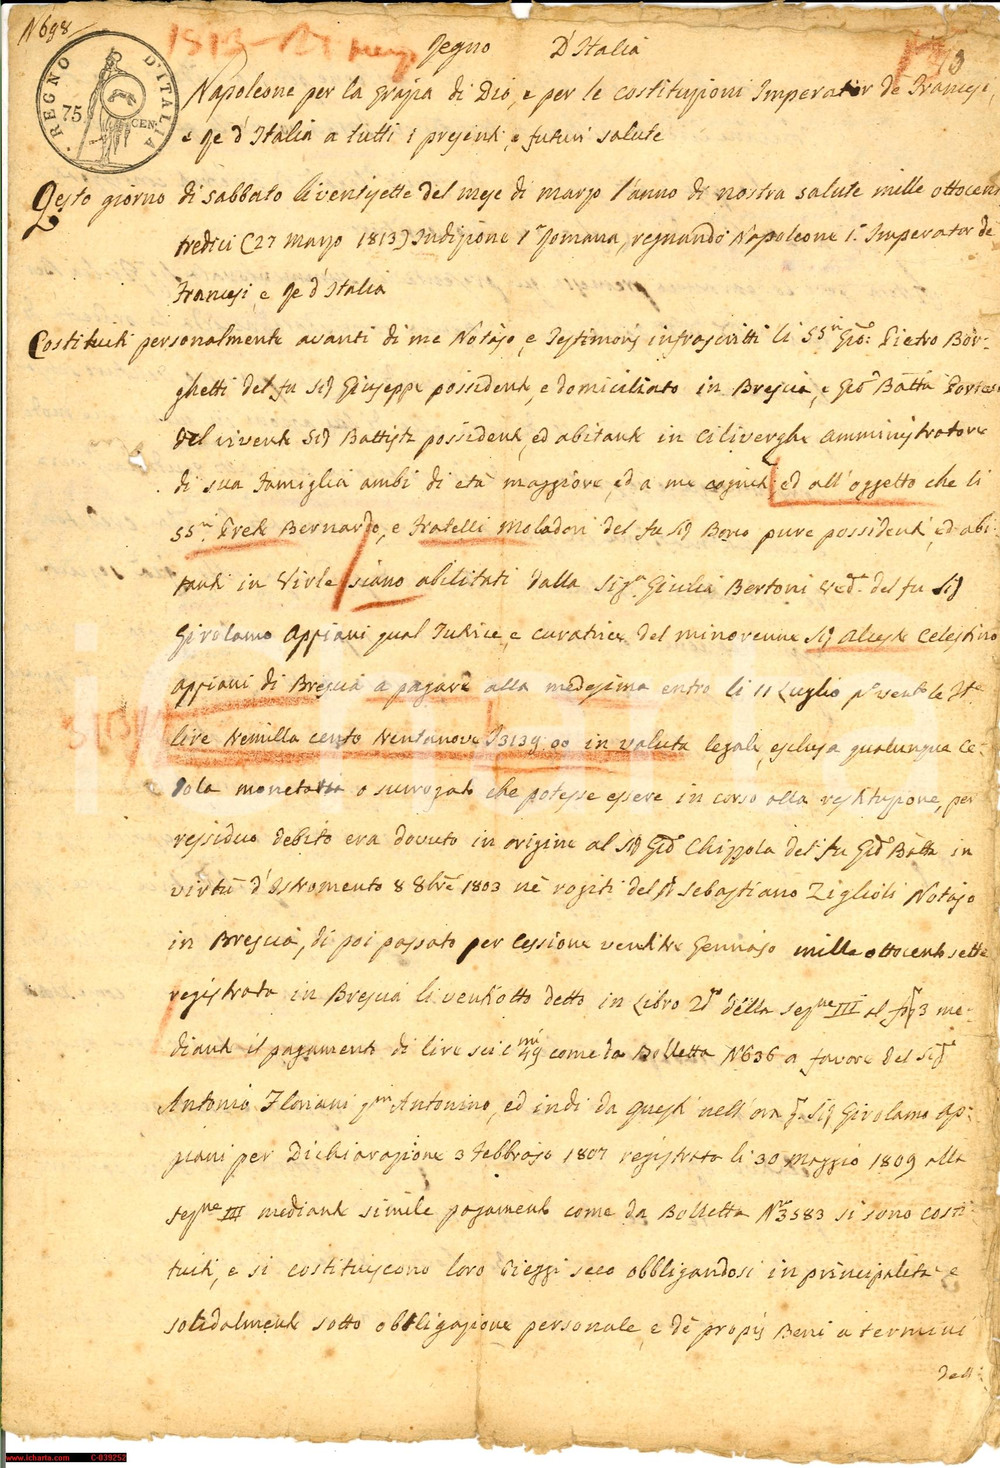 N 698
1813 - 27 Marzo
Regno D'Italia
REGNO D'ITALIA
75 CEN.
Napoleone per la grazia di Dio, e per le costituzioni Imperator de Francesi,
e Re d'Italia a tutti i presenti, e futuri salute
Questo giorno di sabbato li ventisette del mese di marzo l'anno di nostra salute mille ottocento
tredici (27 marzo 1813) Indizione 1.ª Romana, regnando Napoleone 1.º Imperator de
Francesi, e Re d'Italia
Costituiti personalmente avanti di me Notajo, e Testimonj infrascritti li SS.ri Gio: Pietro Bor-
ghetti del fu Sig Giuseppe possidente, e domiciliato in Brescia, e Gio Batta
del vivente Sig Battista possidente, ed abitante in Ciliverghe amministratore
di sua Famiglia ambi di età maggiore, ed a me cogniti, ed all'oggetto che li
SS.ri Prete Bernardo, e Fratelli Moladori del fu Sig Bono pure possidenti, ed abi-
tanti in Virle siano abilitati dalla Sig.ra Giulia Bertoni Ved.a del fu Sig
Girolamo Appiani qual Tutrice, e curatrice del minorenne Sig Celestino
Appiani di Brescia a pagare alla medesima entro li 11 Luglio le
lire tremilla cento trentanove 3139:00 in valuta legale, esclusa qualunque ce-
dola monetata o surrogato che potesse essere in corso alla restituzione, per
ressiduo debito era dovuto in origine al Sig Gio Chizzola del fu Gio Batta in
virtù d'Istromento 8 8bre 1803 nè rogiti del Sebastiano Ziglioli Notajo
in Brescia, di poi passato per Cessione ventitre Gennajo mille ottocento sette
registrata in Brescia li ventotto detto in Libro 2do della III al 3 me-
diante il pagamento di lire sei 49 come da Bolletta N 636 a favore del Sig
Antonio Floriani qm Antonino, ed indi da questi nell'ora Sig Girolamo Ap-
piani per Dichiarazione 3 Febbrajo 1807 registrata li 30 Maggio 1809 alla
III mediante simile pagamento come da Bolletta N 3583 si sono costi-
tuiti, e si costituiscono loro Pieggi seco obbligandosi in principalità e
solidalmente sotto obbligazione personale, e dè proprj Beni a termini
dell-
www.icharta.com C-039252